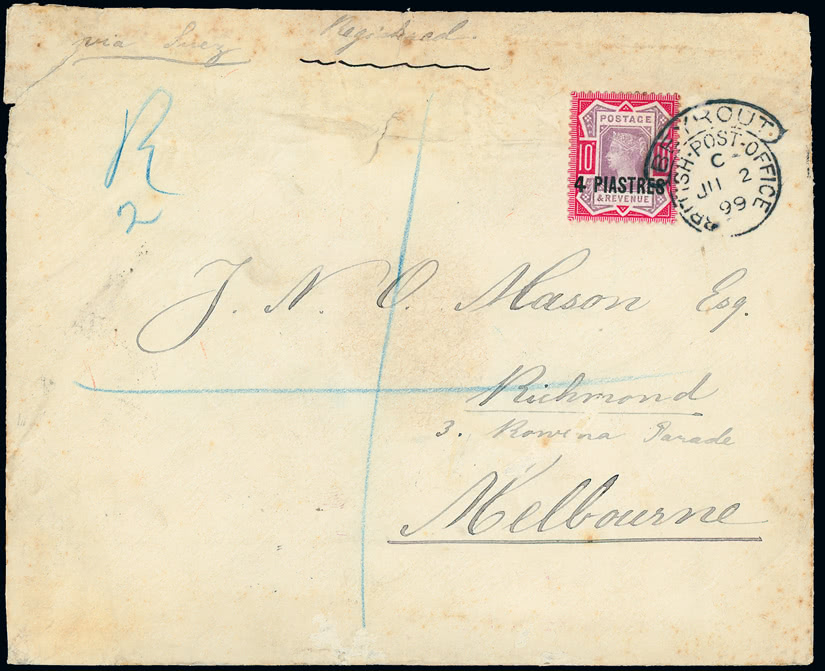 via Suez
Registered.
R
2
POSTAGE
10
4 PIASTRES
& REVENUE
BEYROUT.
BRITISH·POST·OFFICE
C
JU 2
99
J. N. O. Mason Esq.
Richmond
3. Rowena Parade
Melbourne